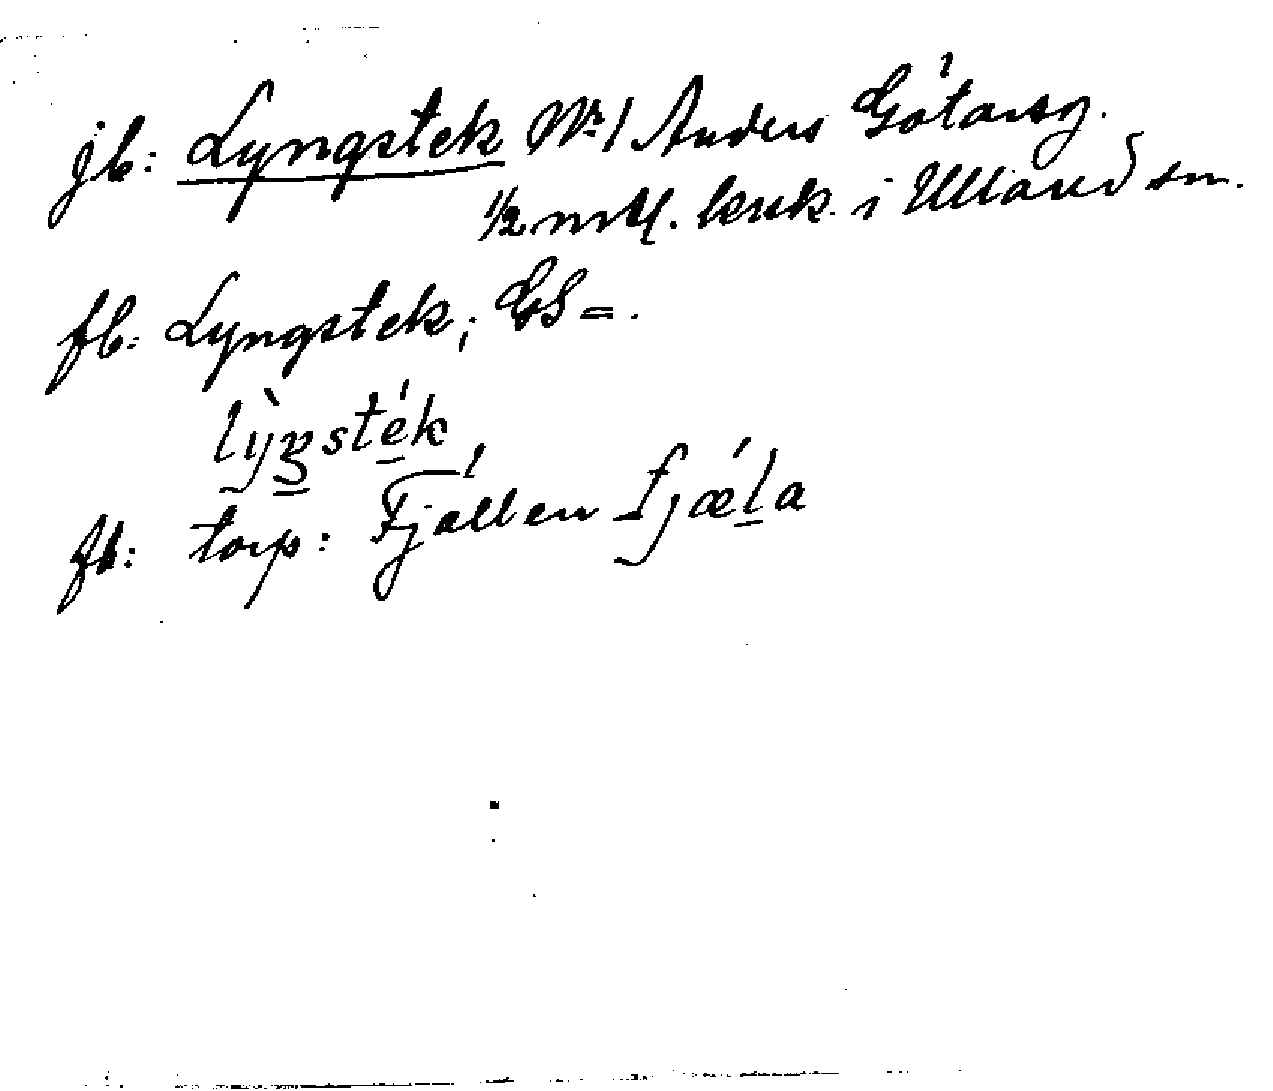 jb: Lyngstek Nr 1 Anders Götarsg.
1/2 mtl. krsk. i Ullared sn.
fb: Lyngstek; GS = .
lỳŋsték
fb: torp: Fjällen fjǽla